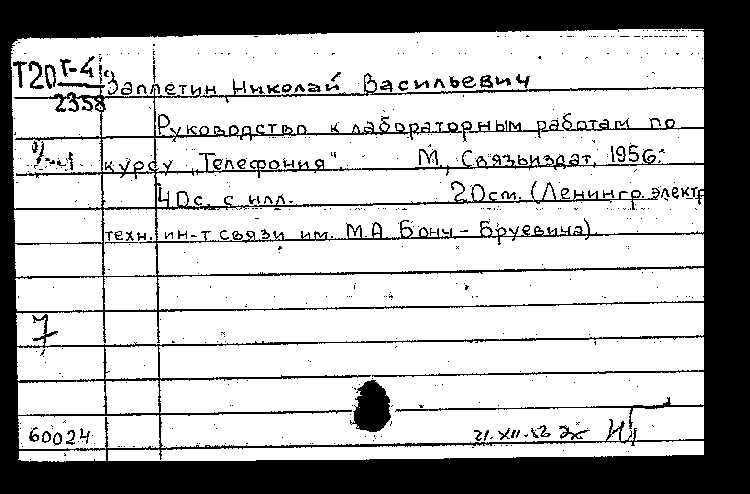 Т20 Г-4
2358
Заплетин, Николай Васильевич
Руководство к лабораторным работам по
курсу „Телефония". М., Связьиздат, 1956.
40с. с илл. 20см. (Ленингр. электр
техн. ин-т связи им. М.А Бонч-Бруевича).
7
60024